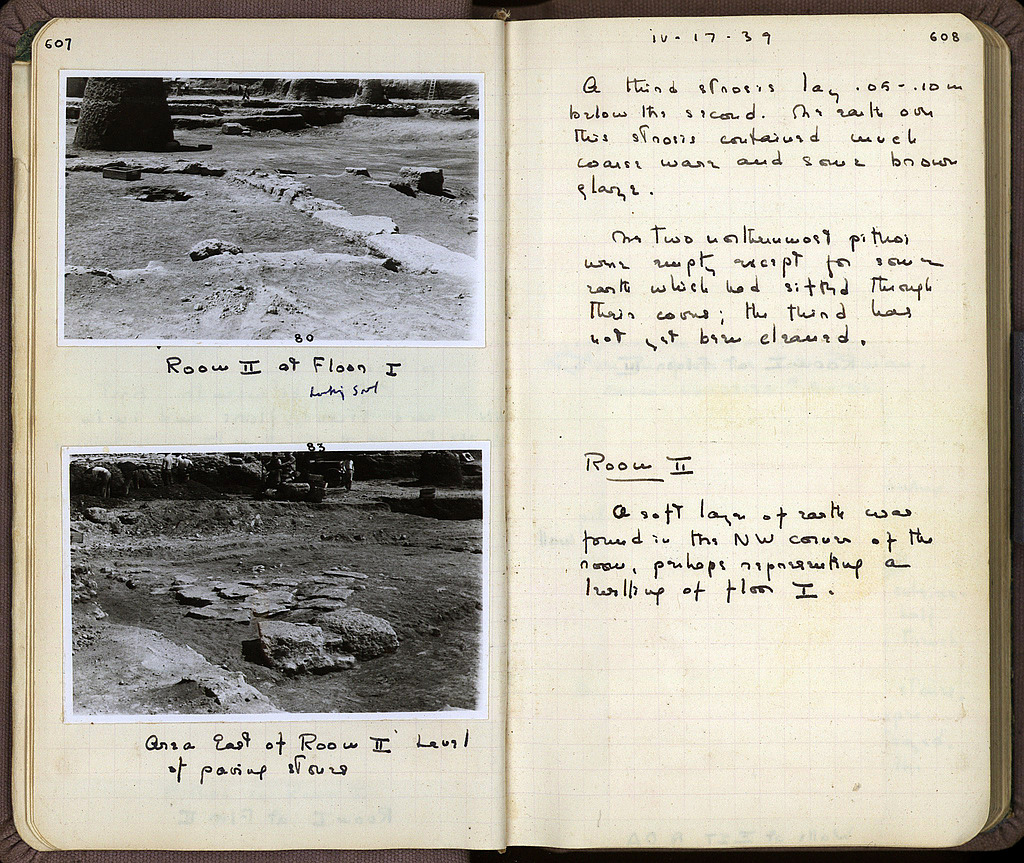 607
80
Room II at Floor I
Looking South
83
Area East of Room II Level
of paving stones
IV - 17 - 39
608
A third strosis lay .05 - .10 m
below the second. The earth over
this strosis contained much
coarse ware and some brown
glaze.
The two northernmost pithoi
were empty except for some
earth which had sifted through
their covers; the third has
not yet been cleaned.
Room II
A soft layer of earth was
found in the NW corner of the
room, perhaps representing a
levelling of floor I.